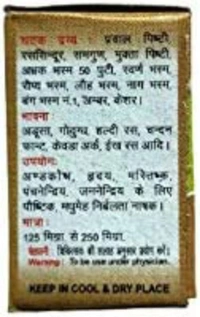 घटक द्रव्य : प्रवाल पिष्टी,
रससिन्दूर, समगुण, मुक्ता पिष्टी,
अभ्रक भस्म 50 पुटी, स्वर्ण भस्म,
रौप्य भस्म, लौह भस्म, नाग भस्म,
बंग भस्म नं.1, अम्बर, केशर।
भावना
अडूसा, गोदुग्ध, हल्दी रस, चन्दन
फान्ट, केवडा अर्क, ईख रस आदि।
उपयोग:
अण्डकोष, हृदय, मस्तिष्क,
पंचनेन्द्रिय, जननेन्द्रिय के लिए
पौष्टिक, मधुमेह निर्बलता नाशक।
मात्रा:
125 मिग्रा से 250 मिग्रा.
चेतावनी : चिकित्सक की सलाह अनुसार प्रयोग करें।
Warning : To be use under physician.
KEEP IN COOL & DRY PLACE